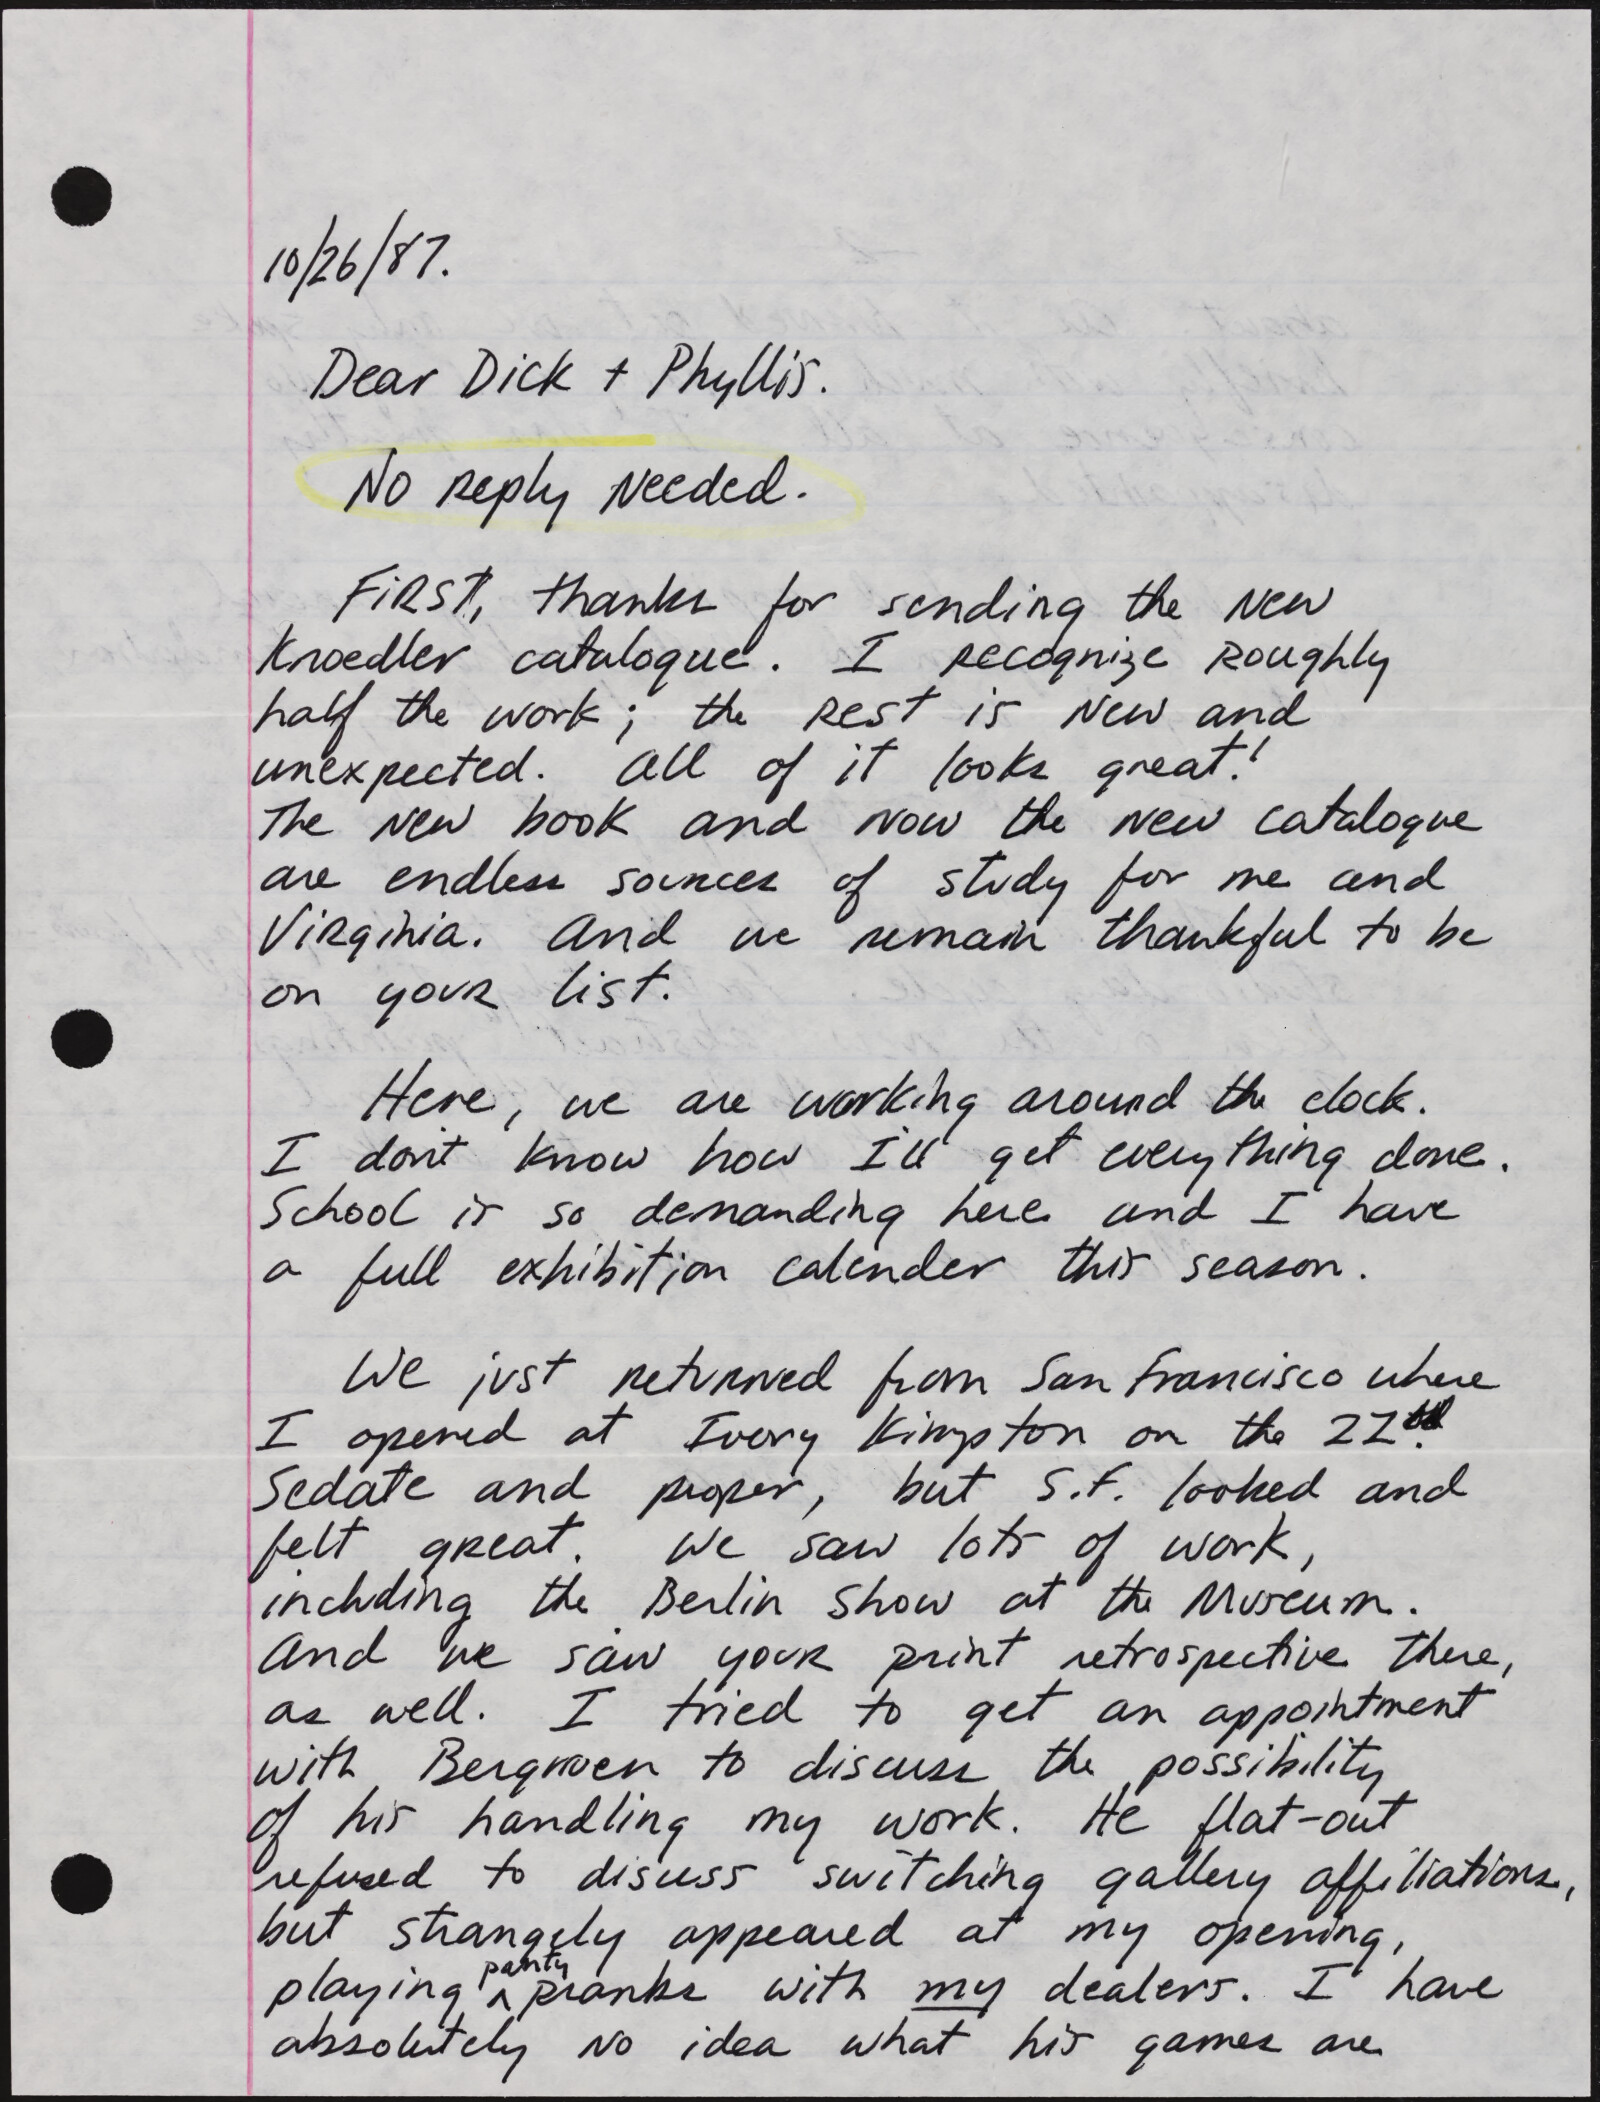 10/26/87.
Dear Dick + Phyllis.
No Reply Needed.
First, thanks for sending the new
Knoedler catalogue. I recognize roughly
half the work; the rest is new and
unexpected. All of it looks great!
The new book and now the new catalogue
are endless sources of study for me and
Virginia. And we remain thankful to be
on your list.
Here, we are working around the clock.
I don't know how I'll get everything done.
School is so demanding here and I have
a full exhibition calender this season.
We just returned from San Francisco where
I opened at Ivory Kimpton on the 22nd.
Sedate and proper, but S.F. looked and
felt great. We saw lots of work,
including the Berlin show at the Museum.
And we saw your print retrospective there,
as well. I tried to get an appointment
with Bergruen to discuss the possibility
of his handling my work. He flat-out
refused to discuss switching gallery affiliations,
but strangely appeared at my opening,
playing party pranks with my dealers. I have
absolutely no idea what his games are